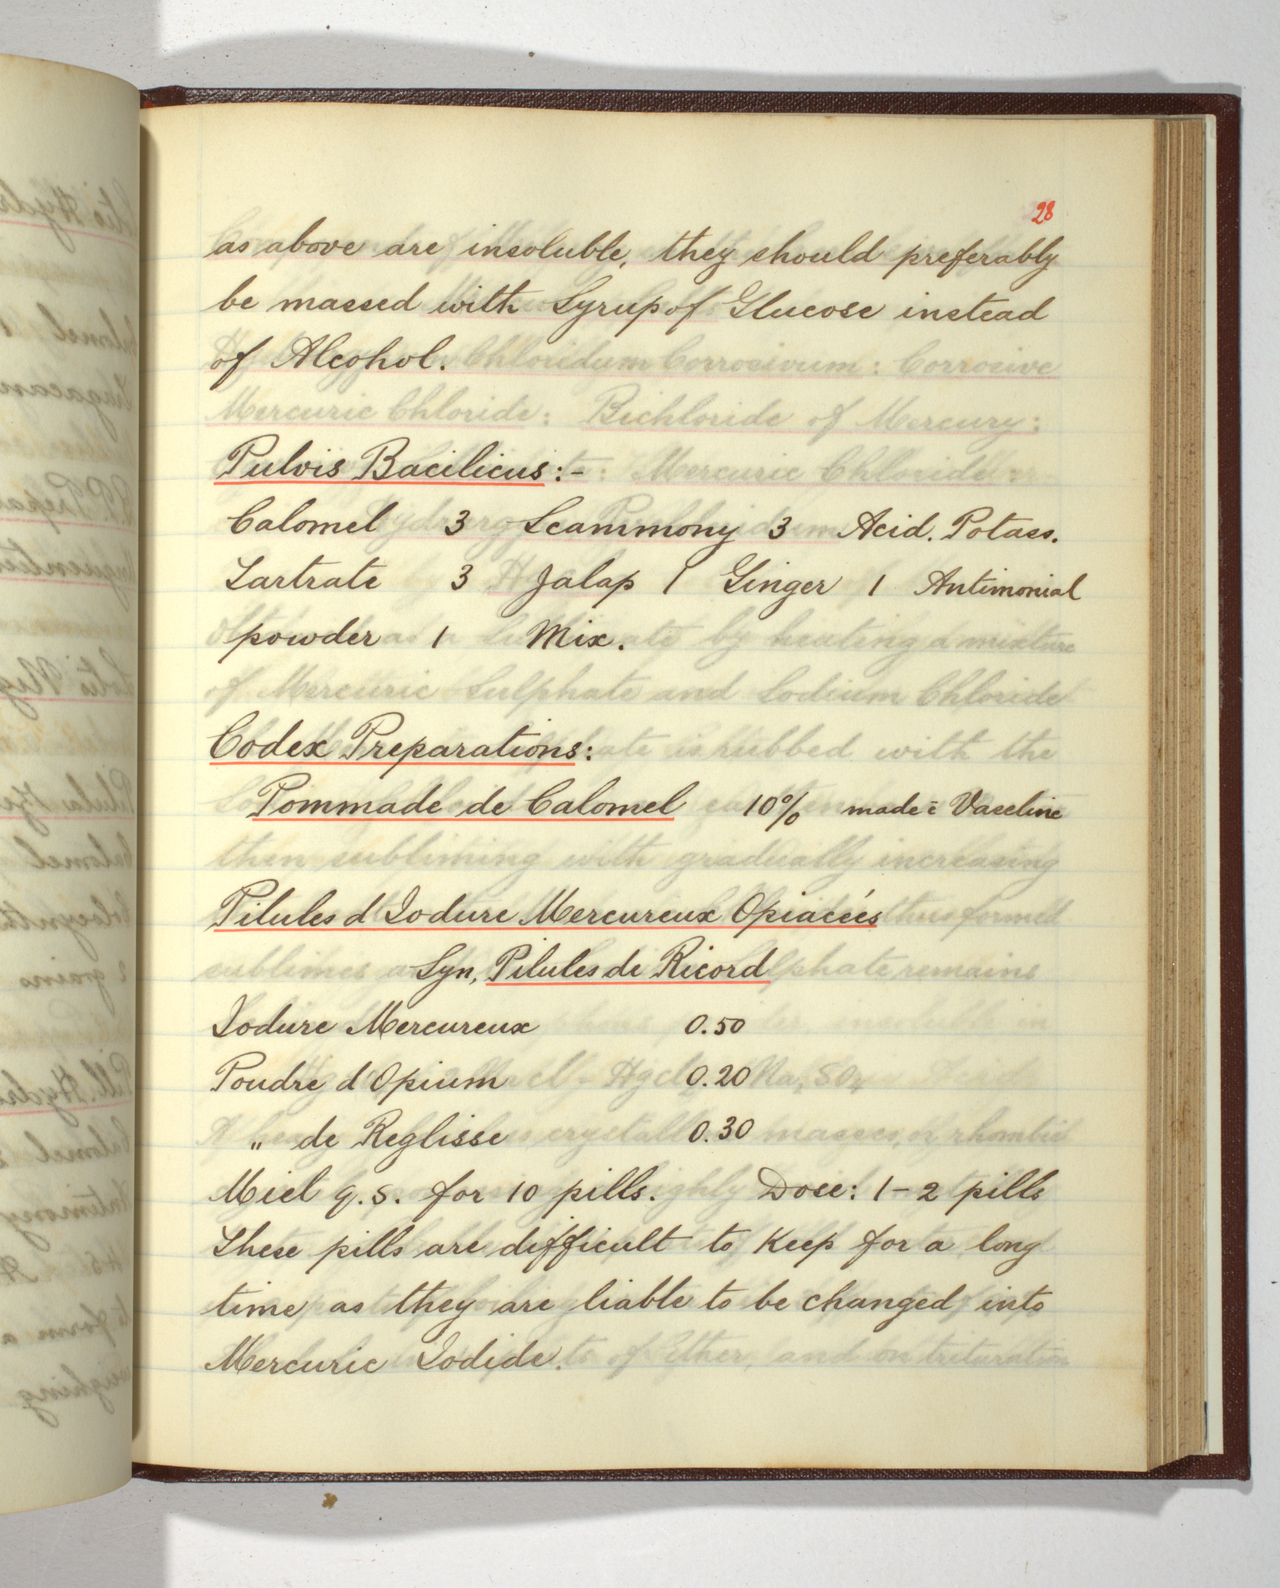 28
as above are insoluble, they should preferably
be massed with Syrup of Glucose instead
of Alcohol.
Pulvis Bacilicus :-
Calomel 3 Scammony 3 Acid. Potass.
Tartrate 3 Jalap 1 Ginger 1 Antimonial
powder 1 Mix.
Codex Preparations:
Pommade de Calomel 10% made c̄ Vaseline
Pilules d Iodure Mercureux Opiacées
Syn, Pilules de Ricord
Iodure Mercureux 0.50
Poudre d Opium 0.20
„ de Reglisse 0.30
Miel q.s. for 10 pills. Dose: 1-2 pills
These pills are difficult to keep for a long
time as they are liable to be changed into
Mercuric Iodide.